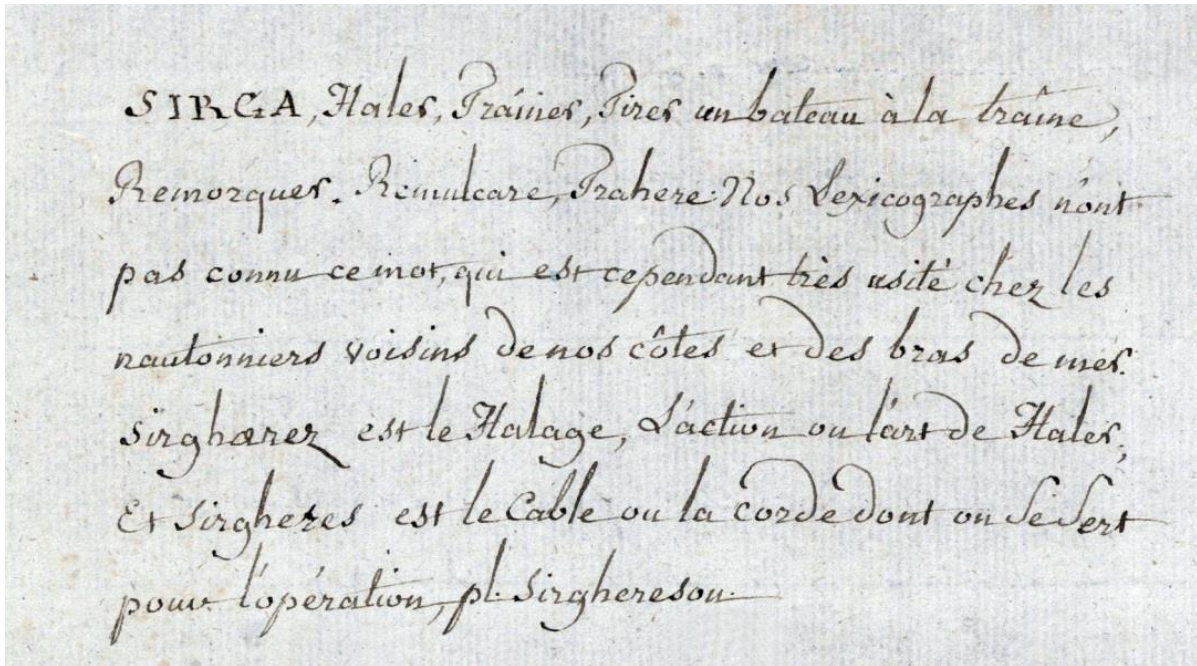 SIRGA, Haler, Traîner, Tirer un bateau à la traîne,
Remorquer. Remulcare, Trahere. Nos Lexicographes n'ont
pas connu ce mot, qui est cependant très usité chez les
nautonniers voisins de nos côtes et des bras de mer.
Sirghærez est le Halage, L'action ou l'art de Haler,
Et Sirgheres est le Cable ou la corde dont on se sert
pour l'opération, pl. Sirgheresou.